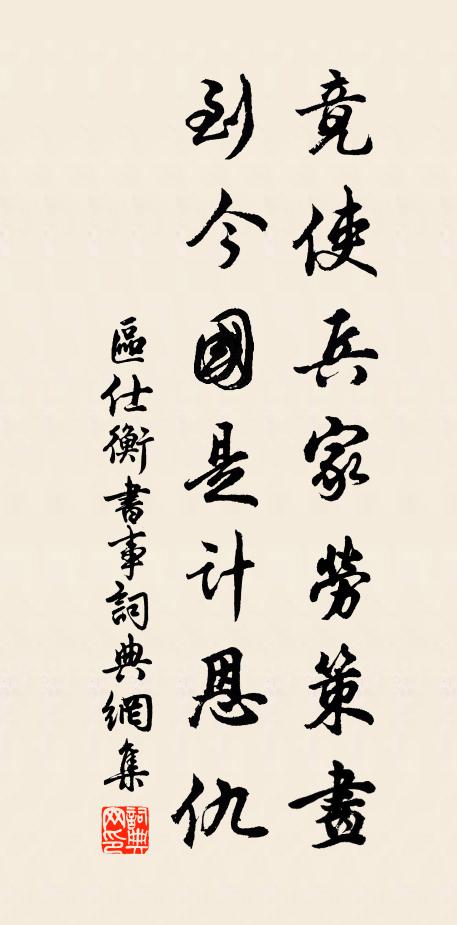 竟使兵家勞策畫
到今國是計恩仇
區仕衡書事詞典網集
詞典网印